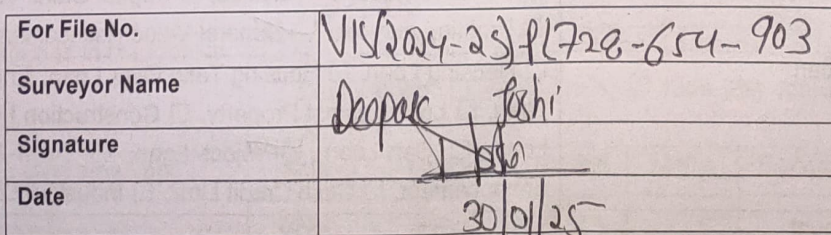 For File No. VIS(2024-25)-PL728-654-903
Surveyor Name Deepak Joshi
Signature
Date 30/01/25